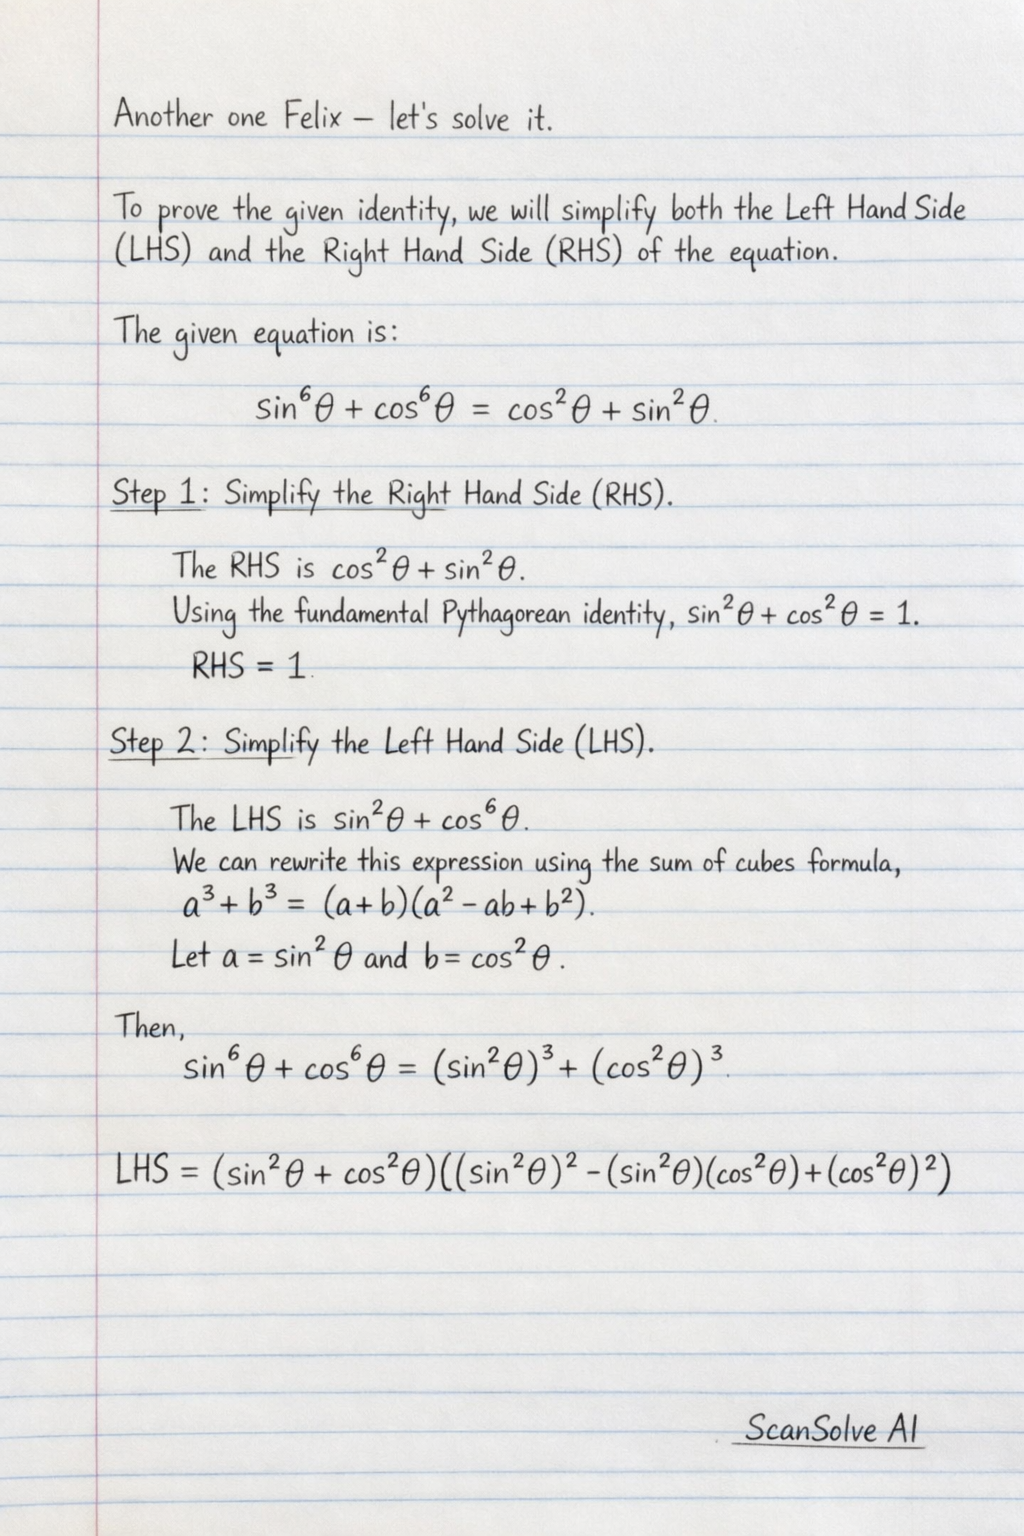 Another one Felix – let's solve it.
To prove the given identity, we will simplify both the Left Hand Side
(LHS) and the Right Hand Side (RHS) of the equation.
The given equation is:
sin⁶θ + cos⁶θ = cos²θ + sin²θ.
Step 1: Simplify the Right Hand Side (RHS).
The RHS is cos²θ + sin²θ.
Using the fundamental Pythagorean identity, sin²θ + cos²θ = 1.
RHS = 1.
Step 2: Simplify the Left Hand Side (LHS).
The LHS is sin²θ + cos⁶θ.
We can rewrite this expression using the sum of cubes formula,
a³ + b³ = (a+b)(a² – ab + b²).
Let a = sin²θ and b = cos²θ.
Then,
sin⁶θ + cos⁶θ = (sin²θ)³ + (cos²θ)³.
LHS = (sin²θ + cos²θ)((sin²θ)² – (sin²θ)(cos²θ) + (cos²θ)²)
ScanSolve AI